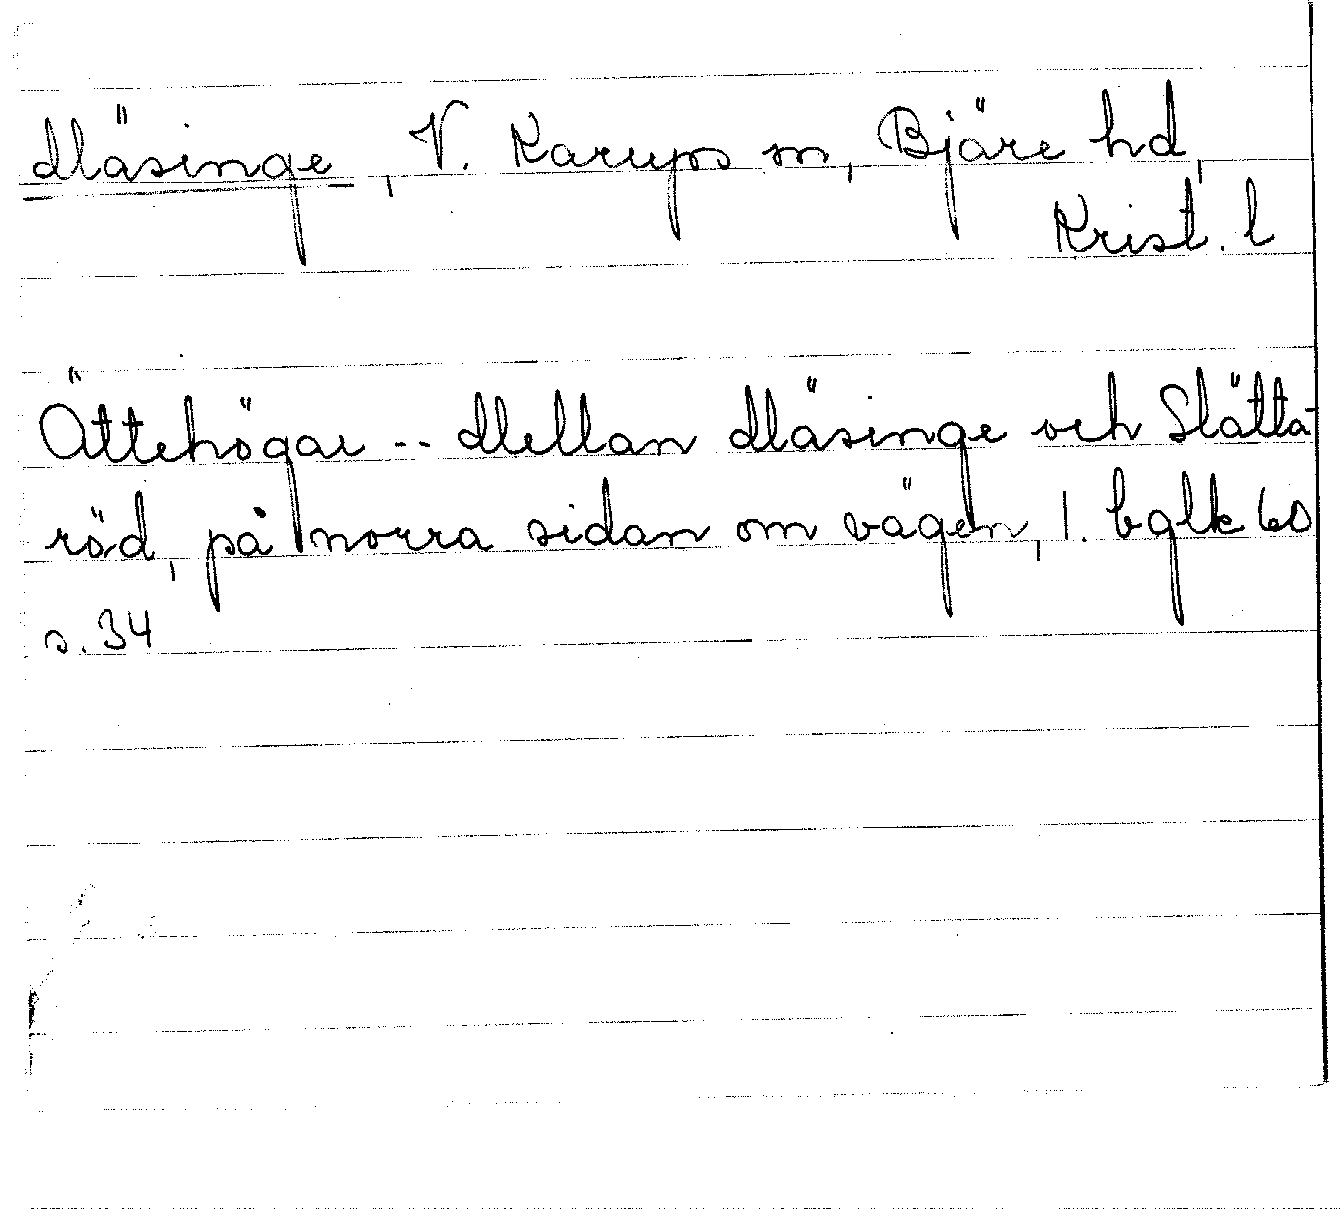 Mäsinge, V. Karups sn, Bjäre hd,
Krist. l
Ättehögar -- Mellan Mäsinge och Slätta-
röd, på norra sidan om vägen, 1. bglk 60
s. 34